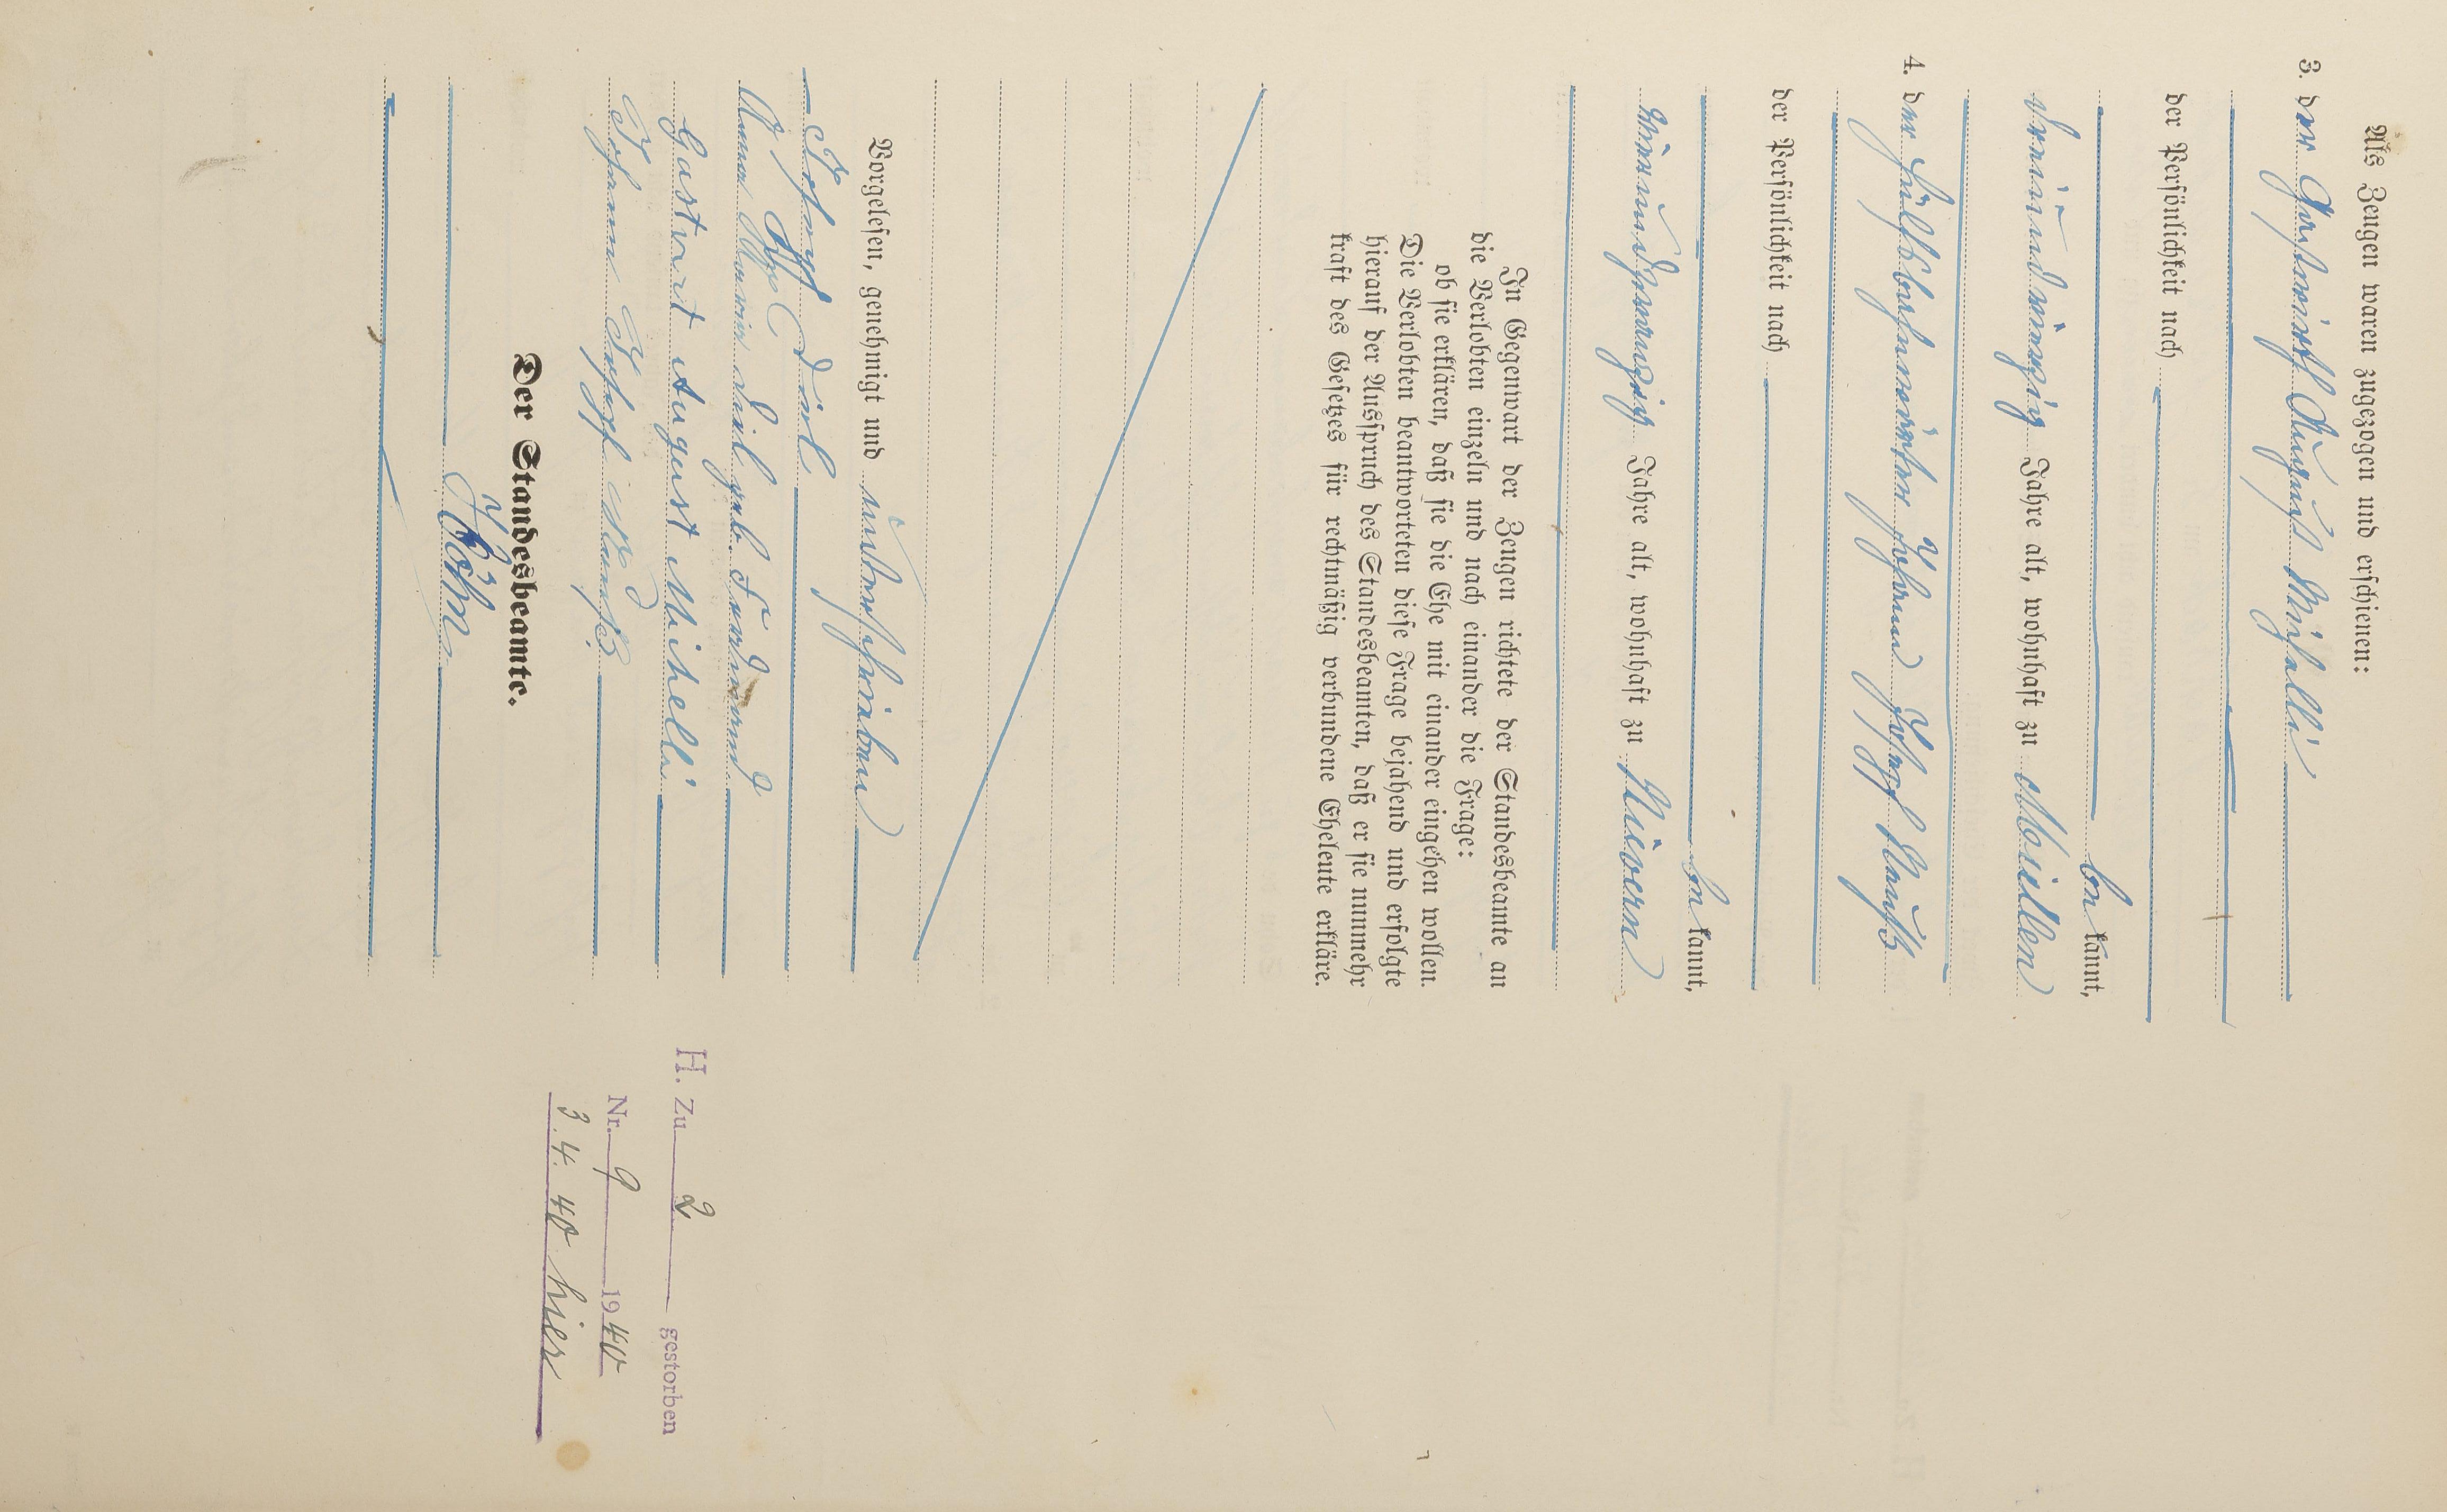 Als Zeugen waren zugezogen und erschienen:
3. der Gastwirth August Mihelli
der Persönlichkeit nach
be kannt,
dreiundvierzig Jahre alt, wohnhaft zu Miellen
4. der Hülfsbahnwärter Johann Josef
der Persönlichkeit nach
be kannt,
vierundzwanzig Jahre alt, wohnhaft zu Nievern
In Gegenwart der Zeugen richtete der Standesbeamte an
die Verlobten einzeln und nach einander die Frage:
ob sie erklären, daß sie die Ehe mit einander eingehen wollen.
Die Verlobten beantworteten diese Frage bejahend und erfolgte
hierauf der Ausspruch des Standesbeamten, daß er sie nunmehr
kraft des Gesetzes für rechtmäßig verbundene Eheleute erkläre.
Vorgelesen, genehmigt und unterschrieben
Josef Diel
Anna Maria Diel geb.
Gastwirt August Mihelli
Johann Josef
Der Standesbeamte.
Höhn
H. Zu 2 gestorben
Nr. 9 1940
3.4.40 hier